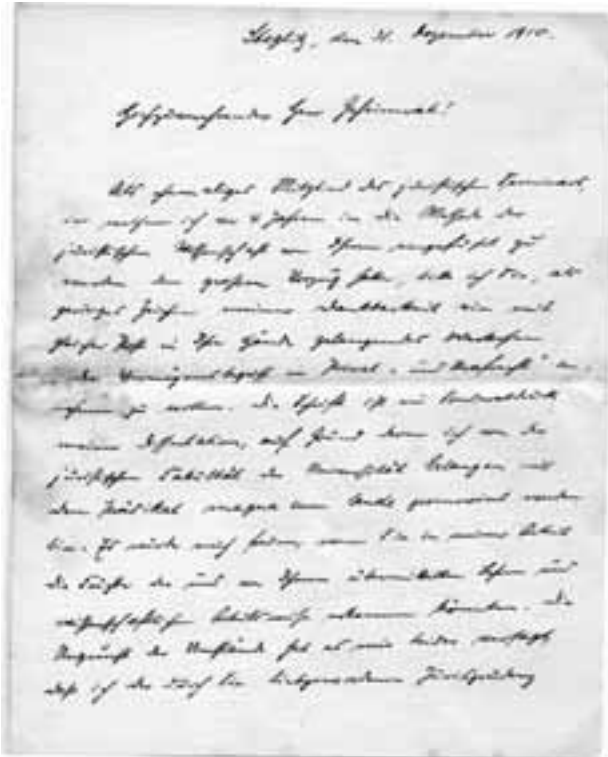 Steglitz, den 31. Dezember 1910.
Hochzuverehrender Herr Geheimrat!
Als ehemaliges Mitglied des juristischen Seminars,
in welchem ich vor 4 Jahren in die Methode der
juristischen Wissenschaft von Ihnen eingeführt zu
werden den großen Vorzug hatte, bitte ich Sie, als
geringes Zeichen meiner Dankbarkeit ein mit
gleicher Post in Ihre Hände gelangendes Werkchen
"der Vermögensbegriff im Privat- und Strafrecht" an-
nehmen zu wollen. Die Schrift ist ein Sonderabdruck
meiner Dissertation, auf Grund deren ich von der
juristischen Fakultät der Universität Erlangen mit
dem Prädikat magna cum laude promoviert worden
bin. Es würde mich freuen, wenn Sie in meiner Arbeit
die Früchte der uns von Ihnen übermittelten Lehren und
wissenschaftlichen Arbeitsweise erkennen könnten. Die
Ungunst der Umstände hat es mir leider versagt,
daß ich der durch Sie liebgewordenen Zivil